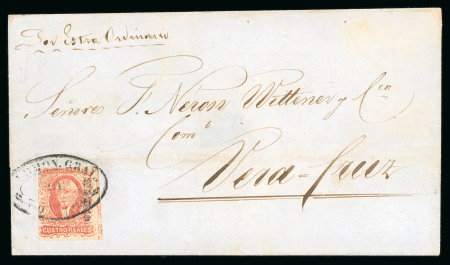 Por Extra Ordinario
Señores F. Neron Wittener y Cia
Comº
Vera-Cruz
CUATRO REALES